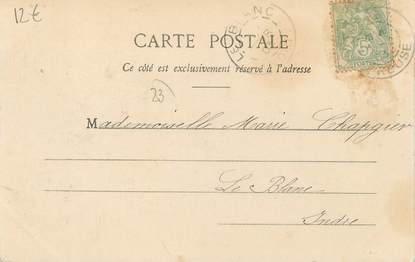 12€
LE BLANC
CARTE POSTALE
Ce côté est exclusivement réservé à l'adresse
23
Mademoiselle Marie Chapgier
Le Blanc
Indre